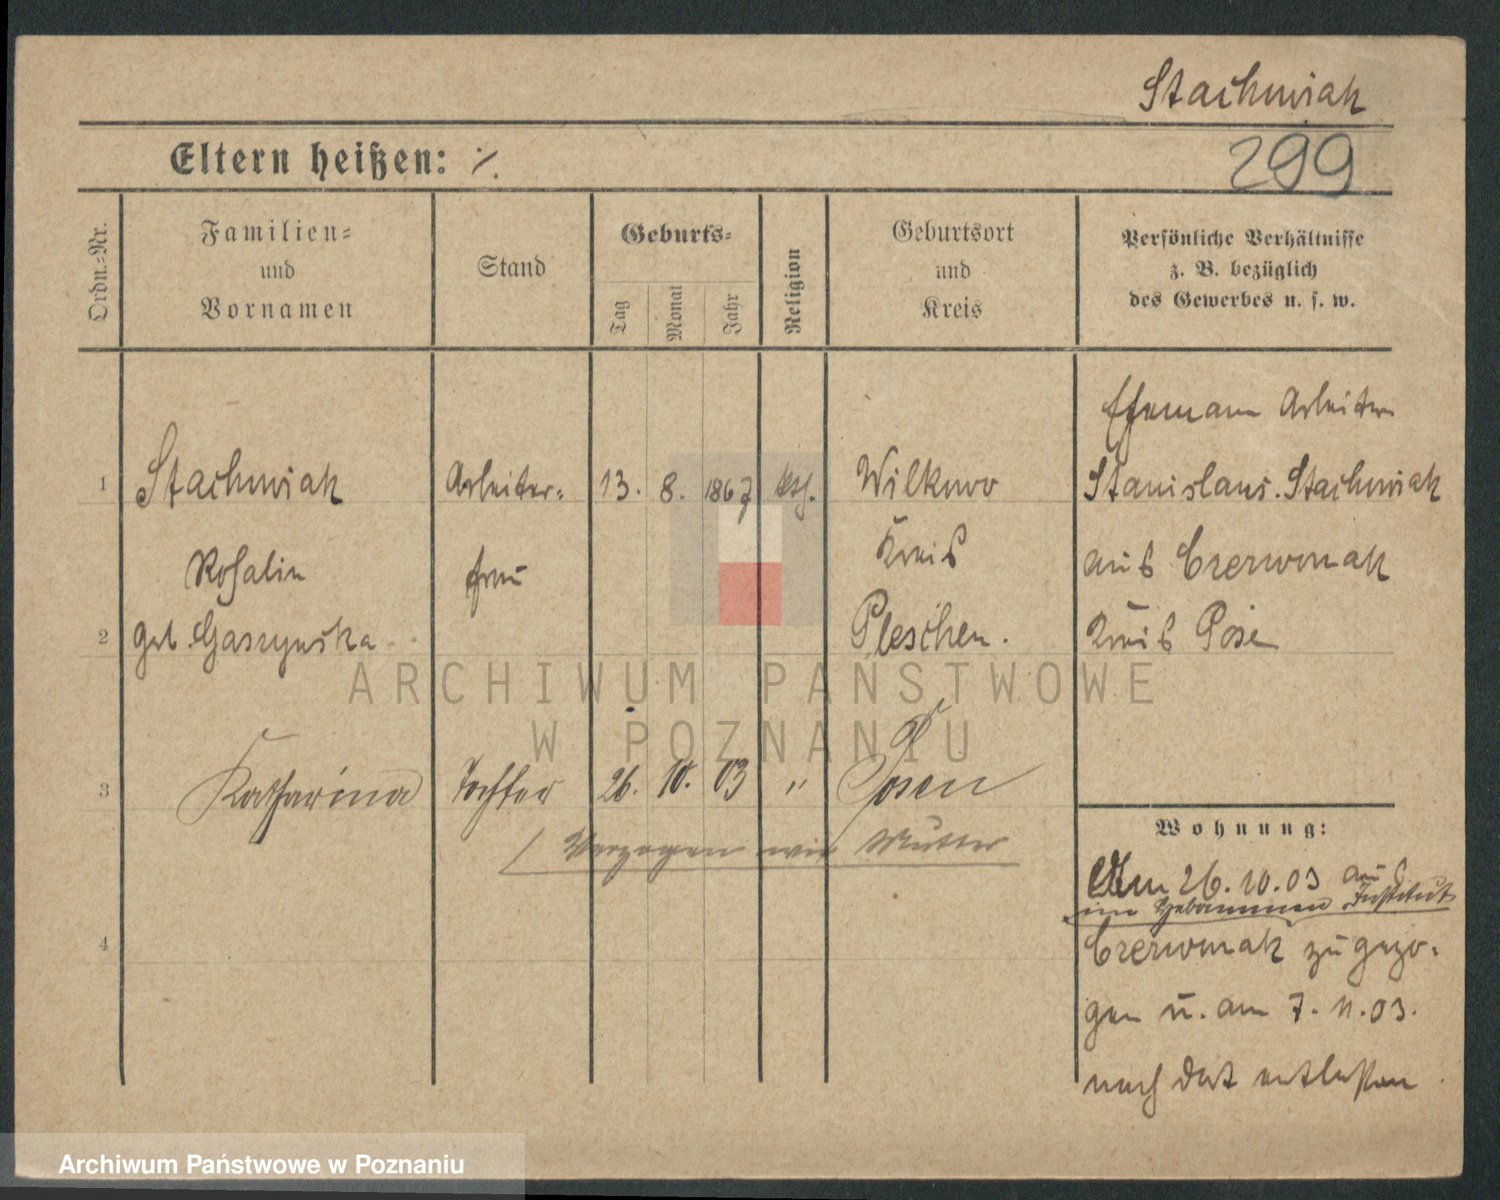 Stachwiak
Eltern heißen: ⁒
299
Ordn.-Nr.
Familien- und Vornamen
Stand
Geburts-
Tag
Monat
Jahr
Religion
Geburtsort und Kreis
Persönliche Verhältnisse
z. B. bezüglich
des Gewerbes u. s. w.
Ehemann Arbeiter
1 Stachwiak Arbeiter- 13. 8. 1867 kth. Wilkowo Stanislaus. Stachwiak
Rosalie frau Kreis aus Czerwonak
2 geb. Gaszynska Pleschen. Kreis Posen
ARCHIWUM PAŃSTWOWE
W POZNANIU
3 Katharina Tochter 26. 10. 03 " Posen
Verzogen wie Mutter
Wohnung:
Am 26.10.03 aus
im Hebammen Institut
4 Czerwonak zugezo-
gen u. am 7. 11. 03.
nach dort entlassen
Archiwum Państwowe w Poznaniu